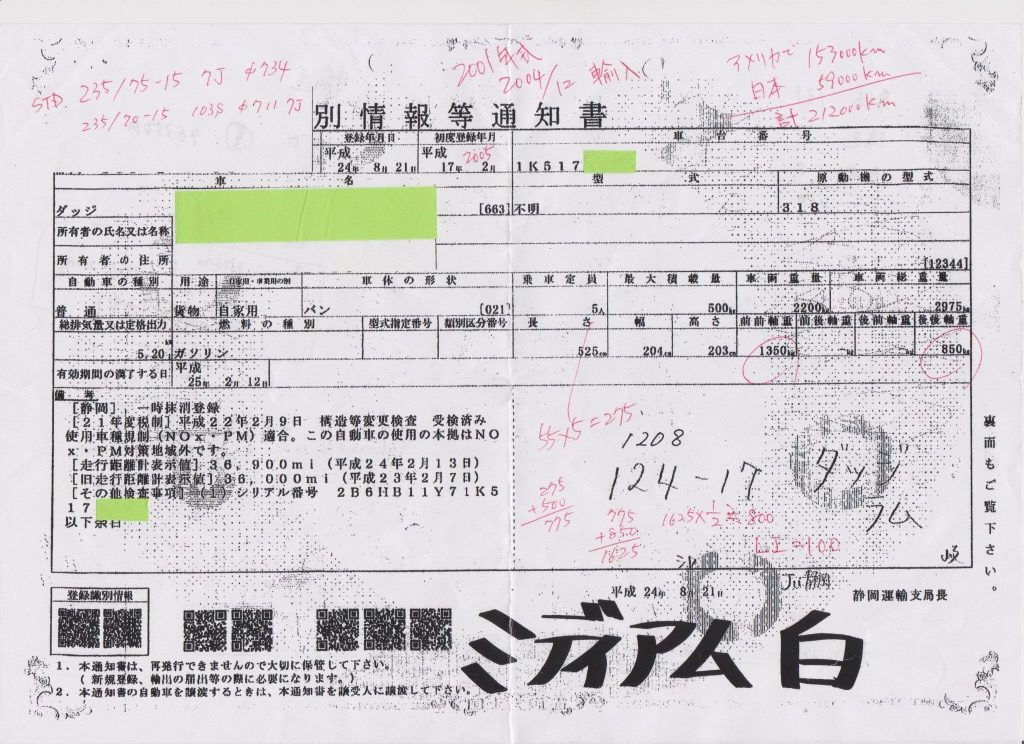 STD. 235/75-15 7J φ734
235/70-15 103S φ711 7J
2001年式
2004/12 輸入
アメリカで 153000km
日本 59000km
計 212000km
別情報等通知書
登録年月日 初度登録年月 車台番号
平成 24年 8月 21日 平成 17年 2月 2005 1K517
車名 型式 原動機の型式
ダッジ [663] 不明 318
所有者の氏名又は名称
所有者の住所 [12344]
自動車の種別 用途 自家用・事業用の別 車体の形状 乗車定員 最大積載量 車両重量 車両総重量
普通 貨物 自家用 バン [021] 5人 500kg 2200kg 2975kg
総排気量又は定格出力 燃料の種別 型式指定番号 類別区分番号 長さ 幅 高さ 前前軸重 前後軸重 後前軸重 後後軸重
5.20 ガソリン 525cm 204cm 203cm 1350kg －kg －kg 850kg
有効期間の満了する日 平成 25年 2月 12日
備考
[静岡]，一時抹消登録
[21年度税制] 平成22年2月9日 構造等変更検査 受検済み
使用車種規制（NOx・PM）適合。この自動車の使用の本拠はNO
x・PM対策地域外です。
[走行距離計表示値] 36,900mi（平成24年2月13日）
[旧走行距離計表示値] 36,000mi（平成23年2月7日）
[その他検査事項]（1）シリアル番号 2B6HB11Y71K5
17
以下余白
55×5=275
1208
124-17
ダッジ
ラム
275
+500
775
775
+850
1625
1625×1/2≒800
LI=100
裏面もご覧下さい。
JU静岡
平成 24年 8月 21日 静岡運輸支局長
登録識別情報
ミディアム 白
1．本通知書は、再発行できませんので大切に保管して下さい。
（新規登録、輸出の届出等の際に必要になります。）
2．本通知書の自動車を譲渡するときは、本通知書を譲受人に譲渡して下さい。